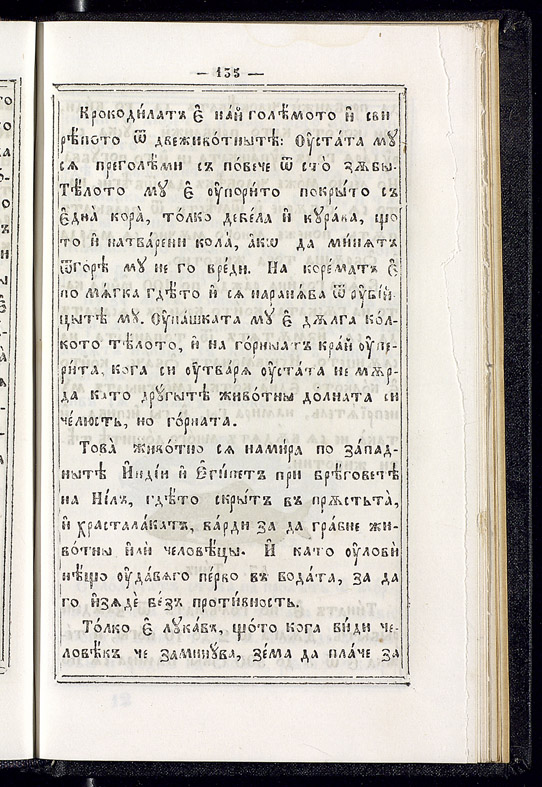 — 135 —
Крокоди́латъ є҆ на́й голѣ́мото и҆ сви
рѣ́пото ѿ двеживо́тнытѣ: Оу҆ста́та мꙋ
сѧ преголѣ́ми съ по́вече ѿ сто̀ зѫ́бы.
Тѣ́лото мꙋ є҆ оу҆пори́то покры́то съ
є҆дна̀ кора̀, то́лко дебе́ла и҆ кꙋра́ва, що
то и҆ натва́рени кола̀, а҆́кѡ да ми́нѧтъ
ѿго́рѣ мꙋ не го вре́ди. На коре́матъ є҆
по мѧ́гка гдѣ́то и҆ сѧ нараня́ва ѿ рꙋ́бїй-
цытѣ мꙋ. Оу҆па́шката мꙋ є҆ дѫ́лга ко́л-
кото тѣ́лото, и҆ на го́рныатъ кра́й оу҆пе-
ри́та, кога си оу҆тва́рѧ оу҆ста́та не мѫ́р-
да като дрꙋ́гытѣ живо́тны до́лната си
че́люсть, но го́рната.
Това̀ живо́тно сѧ нами́ра по за́пад-
нытѣ И҆нді́и и҆ Є҆гѵ́петъ при брѣ́говетѣ
на Ні́лъ, гдѣ́то скры́тъ въ прѫстьта̀,
и҆ храстала́катъ, ва́рди за да гра́бне жи-
во́тны и҆лѝ человѣ́цы. И҆ като оу҆лови́
нѣ́що оу҆да́вѧго перко въ вода́та, за да
го и҆зѧдѐ бе́зъ проти́вность.
То́лко є҆ лꙋка́въ, що́то кога ви́ди че-
ловѣ́къ че заминꙋ́ва, зе́ма да пла́че за